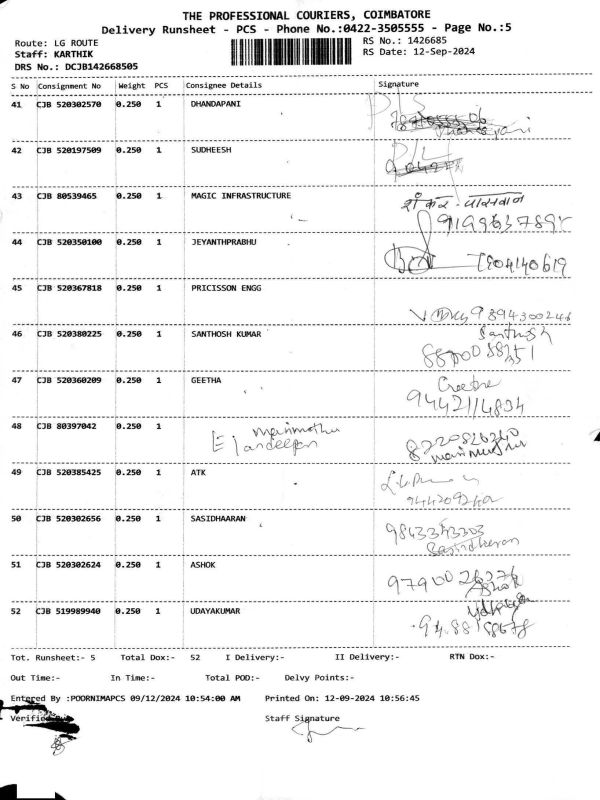 THE PROFESSIONAL COURIERS, COIMBATORE
Delivery Runsheet - PCS - Phone No.:0422-3505555 - Page No.:5
Route: LG ROUTE
RS No.: 1426685
Staff: KARTHIK
RS Date: 12-Sep-2024
DRS No.: DCJB142668505
S No Consignment No Weight PCS Consignee Details Signature
41 CJB 520302570 0.250 1 DHANDAPANI
42 CJB 520197509 0.250 1 SUDHEESH
43 CJB 80539465 0.250 1 MAGIC INFRASTRUCTURE
44 CJB 520350100 0.250 1 JEYANTHPRABHU
7904140619
45 CJB 520367818 0.250 1 PRICISSON ENGG
9894300246
46 CJB 520380225 0.250 1 SANTHOSH KUMAR Santhosh
47 CJB 520360209 0.250 1 GEETHA Geetha
9442114834
48 CJB 80397042 0.250 1
49 CJB 520385425 0.250 1 ATK
50 CJB 520302656 0.250 1 SASIDHAARAN
Sasidharan
51 CJB 520302624 0.250 1 ASHOK
Ashok
52 CJB 519989940 0.250 1 UDAYAKUMAR
Tot. Runsheet:- 5 Total Dox:- 52 I Delivery:- II Delivery:- RTN Dox:-
Out Time:- In Time:- Total POD:- Delvy Points:-
Entered By :POORNIMAPCS 09/12/2024 10:54:00 AM Printed On: 12-09-2024 10:56:45
Verified Staff Signature